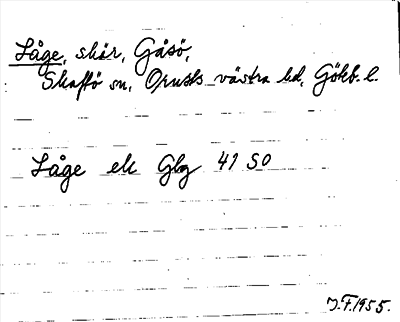 Låge, skär, Gåsö,
Skaftö sn, Orusts västra hd, Göteb. l.
Låge ek Gbg 41 SO
J.F. 1955.